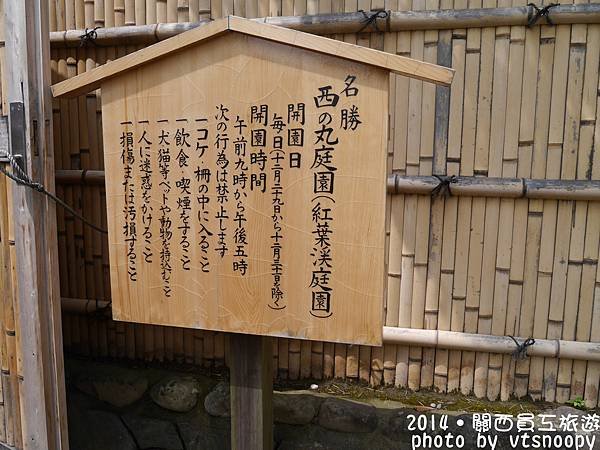 名勝
西の丸庭園(紅葉渓庭園)
開園日
毎日(十二月二十九日から十二月三十一日を除く)
開園時間
午前九時から午後五時
次の行為は禁止します
一コケ・柵の中に入ること
一飲食・喫煙をすること
一犬猫等ペットや動物を持込むこと
一人に迷惑をかけること
一損傷または汚損すること
2014・關西員工旅遊
photo by vtsnoopy